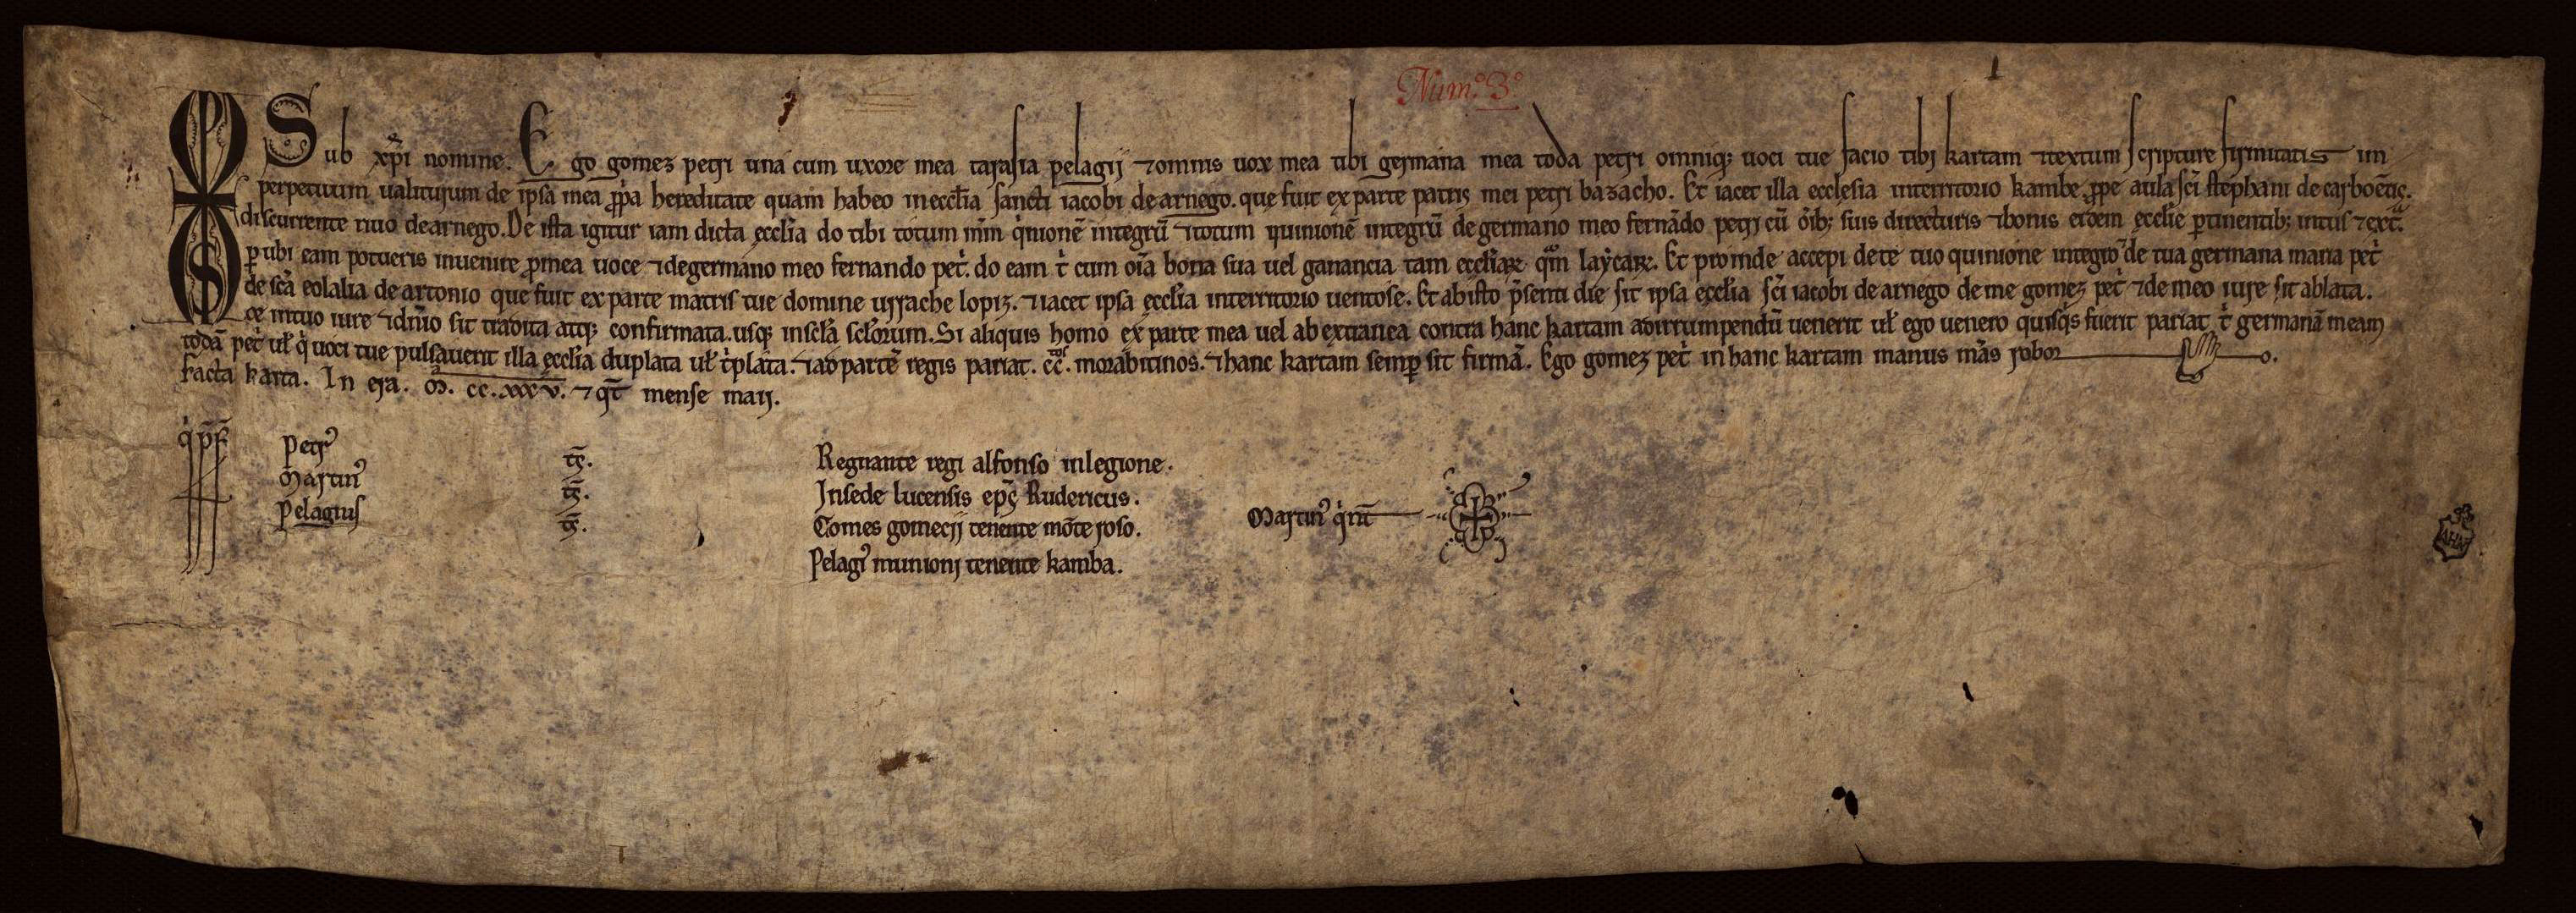 Num.º 3º
Sub xp̃i nomine. Ego gomez petri una cum uxore mea tarasia pelagii ⁊ omnis uox mea tibi germana mea toda petri omniq; uoci tue facio tibi kartam ⁊ textum scripture firmitatis in
perpetuum ualiturum de ipsa mea ꝓp̃a hereditate quam habeo in eccl̃ia sancti iacobi de arnego. que fuit ex parte patris mei petri bazacho. Et iacet illa ecclesia in territorio kambe ꝓpe aula sc̃i stephani de carboẽtic.
discurrente riuo de arnego. De ista igitur iam dicta ęccl̃ia do tibi totum m̃m q̇nionẽ integrũ ⁊ totum quinionẽ integrũ de germano meo fernãdo petri cũ õib; suis directuris ⁊ bonis eidem ęccl̃ie ꝑtinentib; intus ⁊ ext̃.
ꝑ ubi eam potueris inuenire ꝓ mea uoce ⁊ de germano meo fernando pet̃. do eam t̃ cum oĩa bona sua uel ganancia tam eccl̃iaꝝ q̃m laẏcaꝝ. Et proinde accepi de te tuo quinione integro de tua germana maria pet̃
de sc̃a eolalia de artonio que fuit ex parte matris tue domine urrache lopiz. ⁊ iacet ipsa ęccl̃ia in territorio uentose. Et ab isto p̃senti die sit ipsa ęccl̃ia sc̃i iacobi de arnego de me gomez pet̃ ⁊ de meo iure sit ablata.
ce in tuo iure ⁊ dñio sit tradita atq; confirmata. usq; in scl̃a scl̃orum. Si aliquis homo ex parte mea uel ab extranea contra hanc kartam ad irrumpendũ uenerit ul̃ ego uenero quisq̇s fuerit pariat t̃ germanã meam
todã pet̃ ul̃ q̇ uoci tue pulsauerit illa ęccl̃ia duplata ul̃ t̃plata. ⁊ ad partẽ regis pariat. c̃c̃ᵒˢ. morabitinos. ⁊ hanc kartam semꝑ sit firmã. Ego gomez pet̃ in hanc kartam manus m̃as robor
facta karta. In era. M. cc. xxx v. ⁊ q̃t mense maii.
q̇ p̃f̃
Petrꝰ t̃s̃.
Martinꝰ t̃s̃.
Pelagius t̃s̃.
Regnante regi alfonso in legione.
In sede lucensis ep̃ç Rudericus.
Gomes gomecii tenente mõte roso.
Pelagꝰ munionj tenente kamba.
Martinꝰ q̇ nt̃
AHN